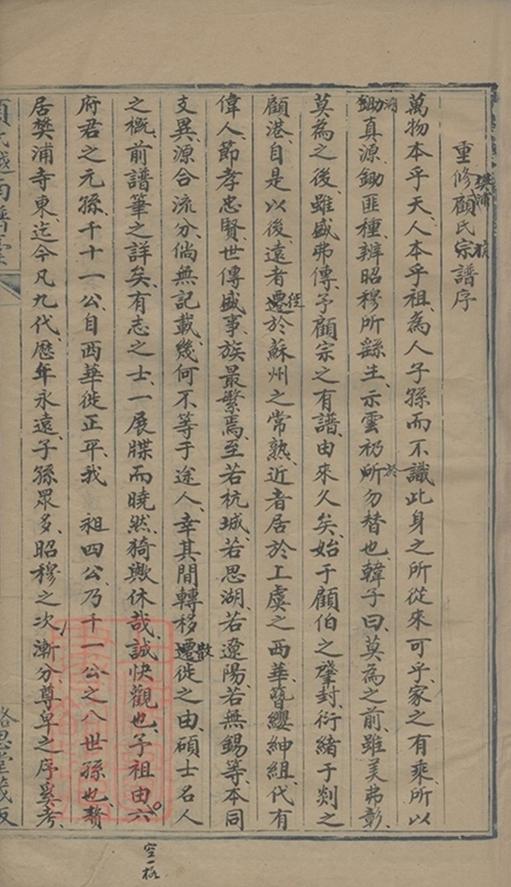 重修樊浦顧氏宗譜序
萬物本乎天人本乎祖為人子孫而不識此身之所從來可乎家之有乘所以
溯真源鋤匪種辨昭穆所繇生示雲礽於勿替也韓子曰莫為之前雖美弗彰
莫為之後雖盛弗傳予顧宗之有譜由來久矣始于顧伯之肇封衍緒于剡之
顧港自是以後遠者遷於蘇州之常熟近者居於上虞之西華簪纓紳組代有
偉人節孝忠賢世傳盛事族最繁焉至若杭城若思湖若遼陽若無錫等本同
支異源合流分倘無記載幾何不等于途人幸其間轉移遷徙之由碩士名人
之概前譜筆之詳矣有志之士一展牒而曉然猗歟休哉誠快觀也予祖由六
府君之元孫千十一公自西華徙正平我 祖四公乃千一公之八世孫也贅
居樊浦寺東迄今凡九代歷年永遠子孫眾多昭穆之次漸分尊卑之序奚考
空一格